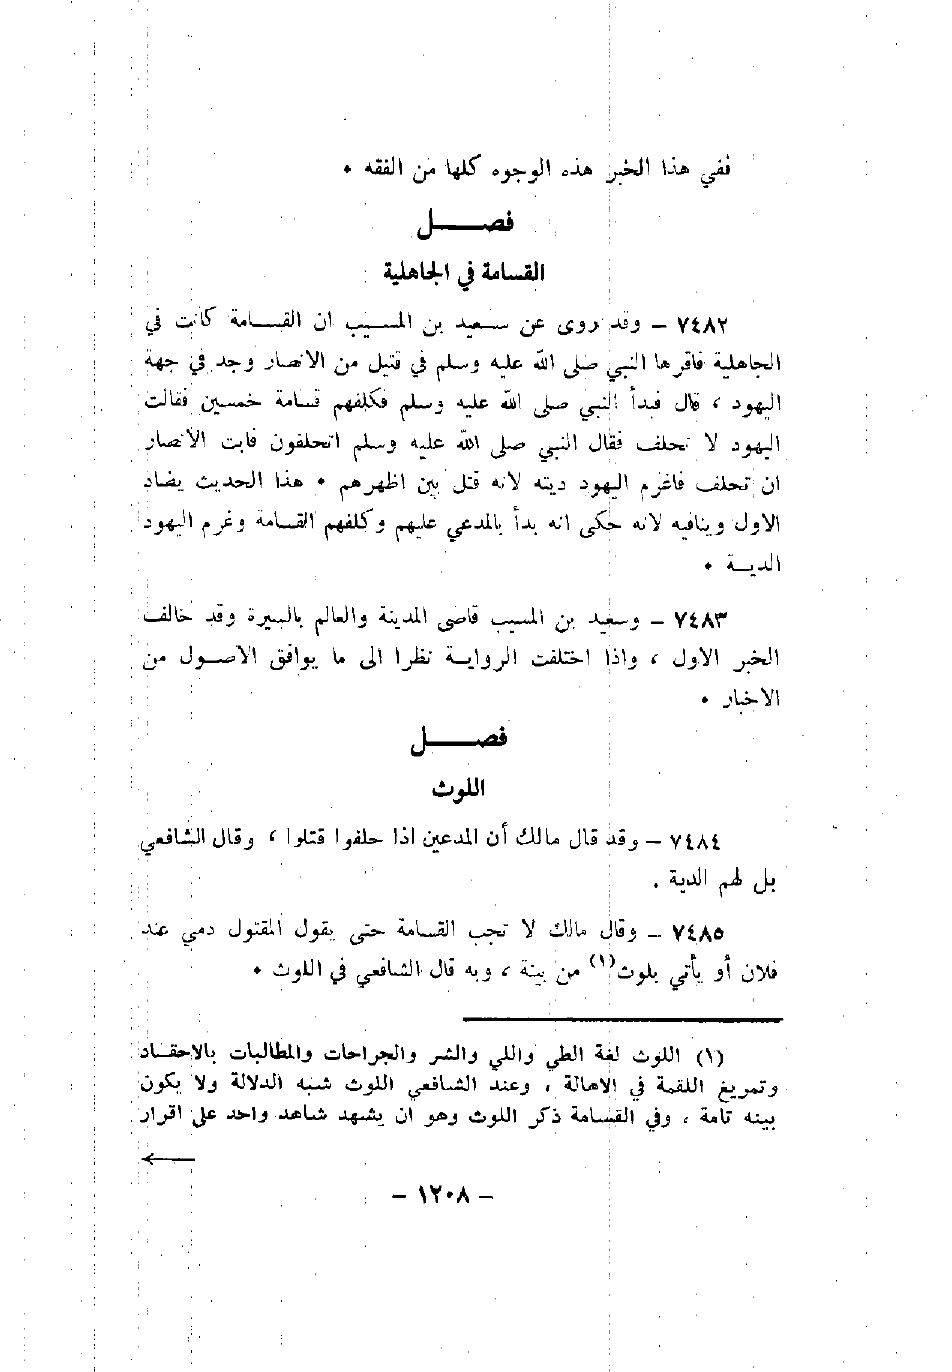 ففي هذا الخبر هذه الوجوه كلها من الفقه .
فصــــل
القسامة في الجاهلية
٧٤٨٢ – وقد روى عن سـعيد بن المسـيب ان القسـامة كانت في
الجاهلية فاقرها النبي صلى الله عليه وسلم في قتيل من الانصار وجد في جهة
اليهود ، قال فبدأ النبي صلى الله عليه وسلم فكلفهم قسامة خمسين فقالت
اليهود لا نحلف فقال النبي صلى الله عليه وسلم اتحلفون فابت الانصار
ان تحلف فاغرم اليهود ديته لانه قتل بين اظهرهم . هذا الحديث يضاد
الاول وينافيه لانه حكى انه بدأ بالمدعي عليهم وكلفهم القسامة وغرم اليهود
الديـة .
٧٤٨٣ – وسعيد بن المسيب قاضى المدينة والعالم بالسيرة وقد خالف
الخبر الاول ، واذا اختلفت الروايـة نظرا الى ما يوافق الاصـول من
الاخبار .
فصــــل
اللوث
٧٤٨٤ – وقد قال مالك أن المدعين اذا حلفوا قتلوا ، وقال الشافعي
بل لهم الدية .
٧٤٨٥ – وقال مالك لا تجب القسامة حتى يقول المقتول دمي عند
فلان أو يأتي بلوث(١) من بينة ، وبه قال الشافعي في اللوث .
(١) اللوث لغة الطي واللي والشر والجراحات والمطالبات بالاحقـاد
وتمريغ اللقمة في الاهالة ، وعند الشافعي اللوث شبه الدلالة ولا يكون
بينه تامة ، وفي القسامة ذكر اللوث وهو ان يشهد شاهد واحد على اقرار
←
– ١٢٠٨ –